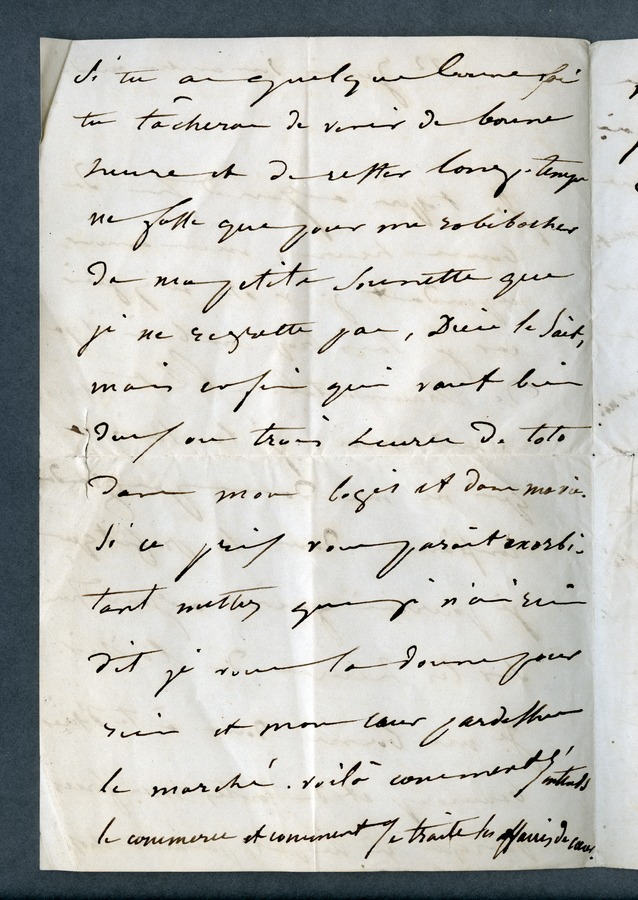 Si tu as quelque bonne foi
tu tâcheras de venir de bonne
heure et de rester longtemps
ne fusse que pour me rabibocher
de ma petite Jeannette que
je ne regrette pas, Dieu le sait,
mais enfin qui vaut bien
deux ou trois heures de toto
dans mon logis et dans ma vie.
Si ce prix vous paraît exorbi-
tant mettez que je n'ai rien
dit je vous la donne pour
rien et mon cœur pardessus
le marché. voilà comment j'entends
le commerce et comment je traite les affaires de cœur.